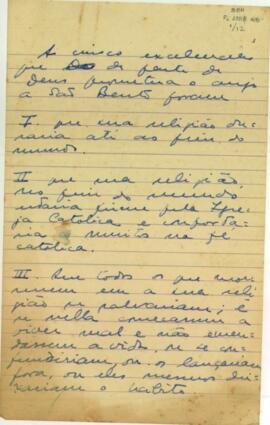 As cinco excelencias
que de parte de
Deus prometeu o anjo
a São Bento foram
I. que sua religião du-
raria até ao fim do
mundo.
II que sua religião,
no fim do mundo
estaria firme pela Igre-
ja Catolica e conforta-
ria a muitos na fé
catolica.
III. Que todos os que mor-
ressem em a sua reli-
gião se salvariam; e
se nella começassem a
viver mal e não emen-
dassem a vida, ou se con-
fundiriam, ou os lançariam
fora, ou eles mesmos dei-
xariam o habito